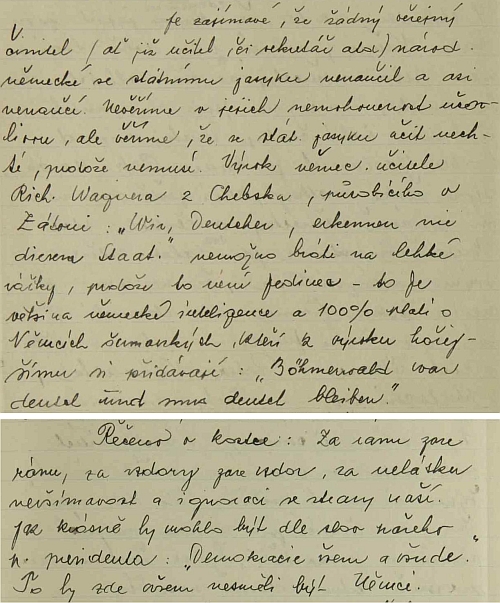 Je zajímavé, že žádný veřejný
činitel (ať již učitel, či sekretář atd) národ.
německé se státnímu jazyku nenaučil a asi
nenaučí. Nevěříme v jejich nemohoucnost
, ale věříme, že se stát. jazyku učit nech-
tě, protože nemusí. Výrok němec. učitele
Rich. Wagnera z Chebska, působícího v
Zátoni: „Wir, Deutscher, erkennen nie
diesen Staat." nemožno bráti na lehké
vážky, protože to není jedinec - to je
většina německé inteligence a 100% platí o
Němcích šumavských, kteří k výroku hořej-
šímu si přidávají: „Böhmerwald war
deutsch und muss deutsch bleiben."
Řečeno v kostce: Za ránu zase
ránu, za vzdory zase vzdor, za nelásku
nevšímavost a ignoraci se strany naší.
Jak krásně by mohlo být dle slov našeho
p. presidenta: „Demokracie všem a všude."
To by zde ovšem nesměli být Němci.